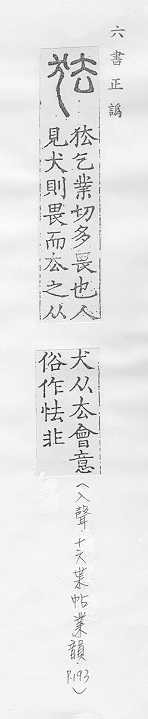 六書正譌
㹤乞業切多畏也人
見犬則畏而厺之从
犬从厺會意
俗作怯非
(入聲·十六葉帖業韻 P.193)